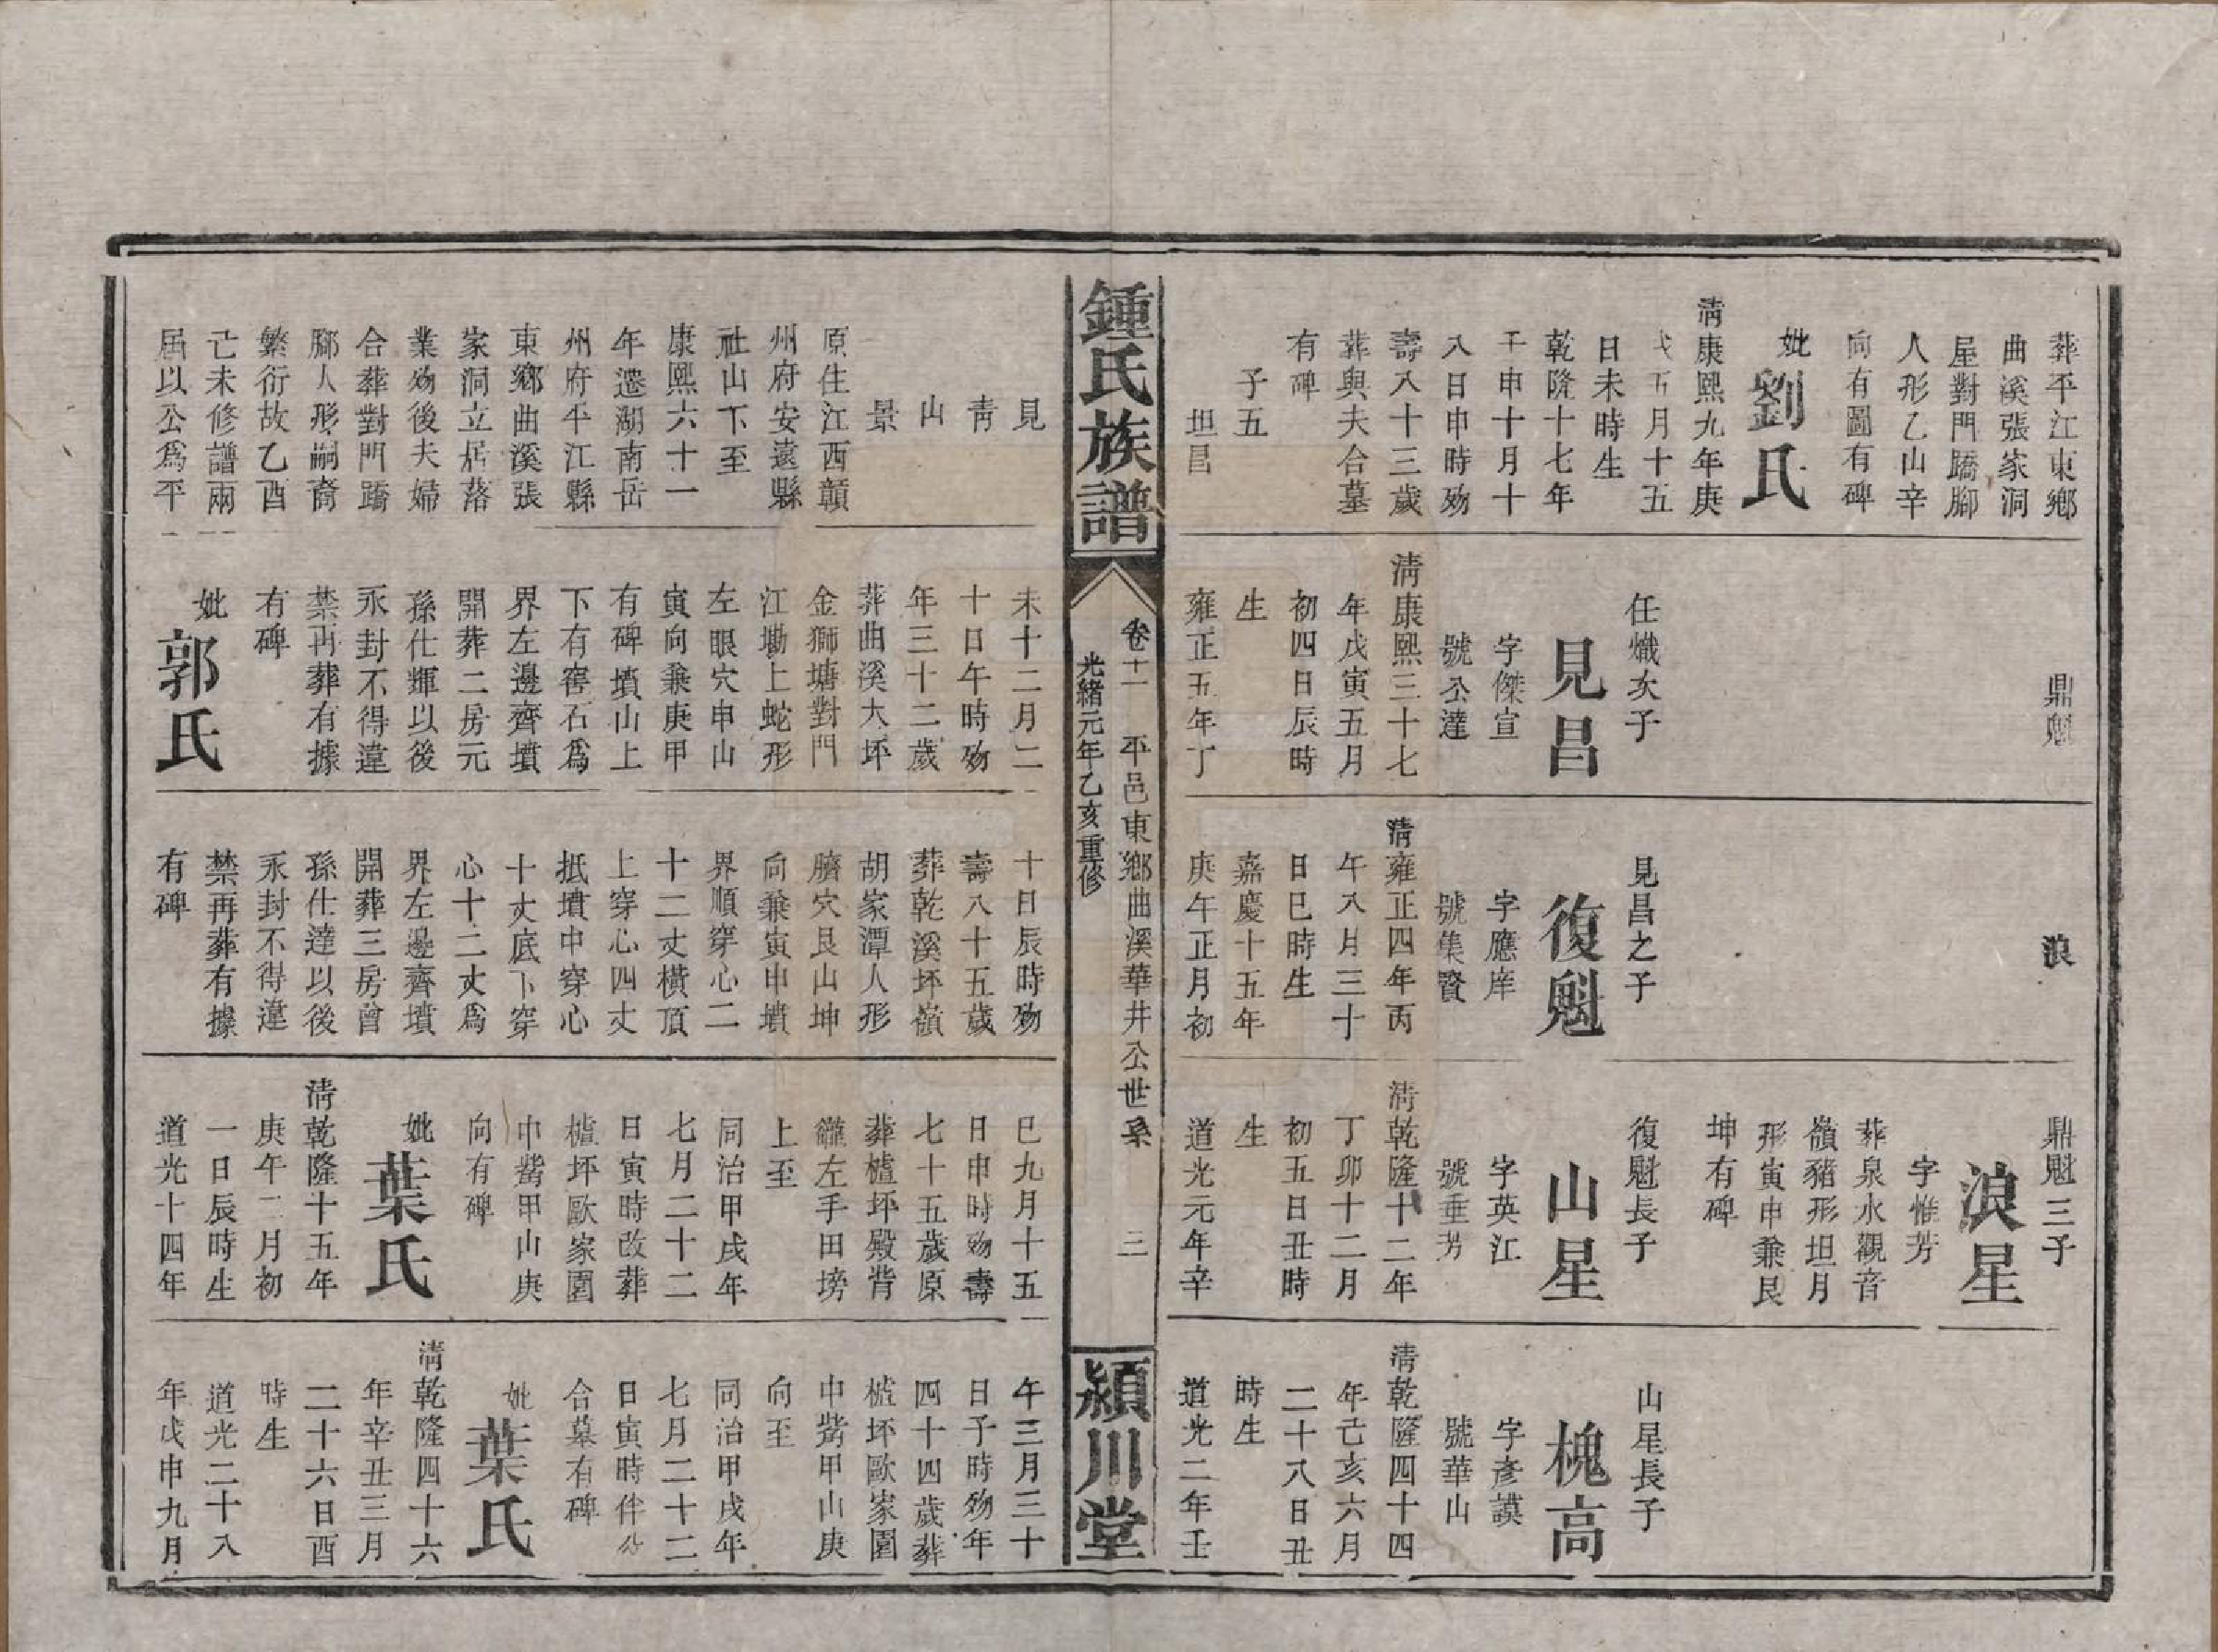 葬平江東鄉
曲溪張家洞
屋對門蹻腳
人形乙山辛
向有圖有碑
妣劉氏
清康熙九年庚
戌五月十五
日未時生
乾隆十七年
壬申十月十
八日申時歿
壽八十三歲
葬與夫合墓
有碑
子五
坦昌
見
青
山
景
原住江西贛
州府安遠縣
社山下至
康熙六十一
年遷湖南岳
州府平江縣
東鄉曲溪張
家洞立居落
業歿後夫婦
合葬對門蹻
腳人形嗣裔
繁衍故乙酉
己未修譜兩
屆以公爲平
鼎魁
任熾次子
見昌
字傑宣
號公達
清康熙三十七
年戊寅五月
初四日辰時
生
雍正五年丁
未十二月二
十日午時歿
年三十二歲
葬曲溪大坪
金獅塘對門
江墈上蛇形
左眼穴申山
寅向兼庚甲
有碑墳山上
下有窖石爲
界左邊齊墳
開葬二房元
孫仕輝以後
永封不得違
禁再葬有據
有碑
妣郭氏
浪
見昌之子
復魁
字應庠
號集賢
清雍正四年丙
午八月三十
日巳時生
嘉慶十五年
庚午正月初
十日辰時歿
壽八十五歲
葬乾溪坪嶺
胡家潭人形
臍穴艮山坤
向兼寅申墳
界順穿心二
十二丈橫頂
上穿心四丈
抵墳中穿心
十丈底下穿
心十二丈爲
界左邊齊墳
開葬三房曾
孫仕達以後
永封不得違
禁再葬有據
有碑
鼎魁三子
浪星
字惟芳
葬泉水觀音
嶺豬形坦月
形寅申兼艮
坤有碑
復魁長子
山星
字英江
號垂芳
清乾隆十二年
丁卯十二月
初五日丑時
生
道光元年辛
巳九月十五
日申時歿壽
七十五歲原
葬櫨坪殿背
籬左手田塝
上至
同治甲戌年
七月二十二
日寅時改葬
櫨坪歐家園
中嘴甲山庚
向有碑
妣葉氏
清乾隆十五年
庚午二月初
一日辰時生
道光十四年
山星長子
槐高
字彥謨
號華山
清乾隆四十四
年己亥六月
二十八日丑
時生
道光二年壬
午三月三十
日子時歿年
四十四歲葬
櫨坪歐家園
中嘴甲山庚
向至
同治甲戌年
七月二十二
日寅時伴父
合墓有碑
妣葉氏
清乾隆四十六
年辛丑三月
二十六日酉
時生
道光二十八
年戊申九月
鍾氏族譜
卷十一 平邑東鄉曲溪華井公世系 三
光緒元年乙亥重修
潁川堂